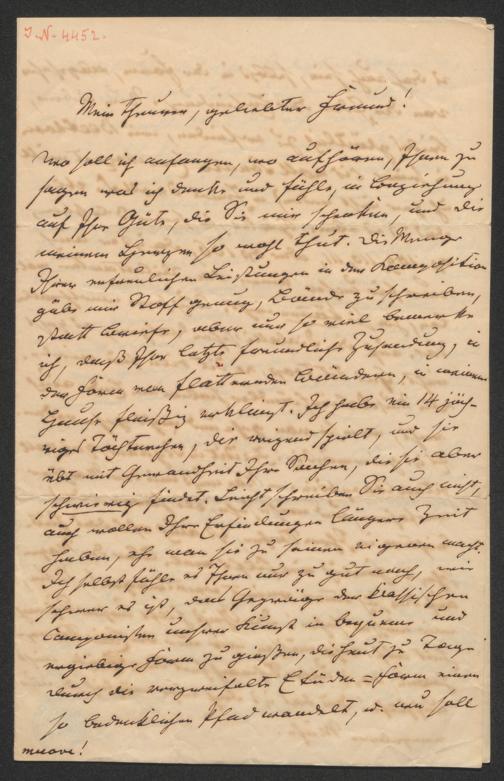 I. N. 4452.
Mein theurer, geliebter Freund!
Wo soll ich anfangen, wo aufhören, Ihnen zu
sagen was ich denke und fühle, in Beziehung
auf Ihre Güte, die Sie mir schenken, und die
meinem Herzen so wohl thut. Die Menge
Ihrer erfreulichen Leistungen in der Komposition
gäbe mir Stoff genug, Bände zu schreiben,
statt Briefe, aber nur so viel bemerke
ich, daß Ihre letzte freundliche Zusendung, in
der Form von flatternden Bändern, in meinem
Hause fleißig erklingt. Ich habe ein 14 jäh-
riges Töchterchen, die reizend spielt, und sie
übt mit Gewandheit Ihre Sachen, die sie aber
schwierig findet. Leicht schreiben Sie auch nicht,
auch wollen Ihre Erfindungen längere Zeit
haben, ehe man sie zu seinen eigenen macht.
Ich selbst fühle es Ihnen nur zu gut nach, wie
schwer es ist, das Gepräge der klassischen
Componisten unsrer Kunst in bequeme und
ergiebige Form zu gießen, die heut zu Tage
durch die verzweifelte Etüden=Form einen
so bedenklichen Pfad wandelt, u. neu soll